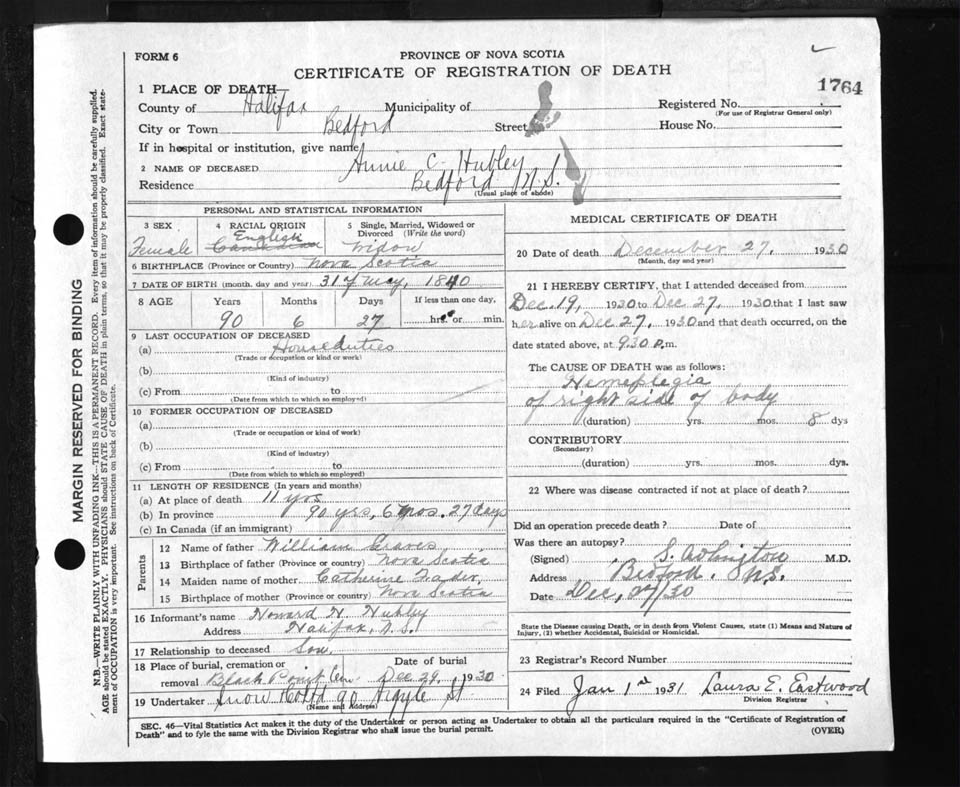 FORM 6
PROVINCE OF NOVA SCOTIA
CERTIFICATE OF REGISTRATION OF DEATH
1764
1 PLACE OF DEATH
County of Halifax Municipality of Registered No.
(For use of Registrar General only)
City or Town Bedford Street House No.
If in hospital or institution, give name
2 NAME OF DECEASED Annie C. Hubley
Residence Bedford N.S.
(Usual place of abode)
PERSONAL AND STATISTICAL INFORMATION
3 SEX Female
4 RACIAL ORIGIN English Canadian
5 Single, Married, Widowed or Divorced (Write the word) Widow
6 BIRTHPLACE (Province or Country) Nova Scotia
7 DATE OF BIRTH (month, day and year) 31 of May, 1840
8 AGE Years Months Days If less than one day,
90 6 27 hrs. or min.
9 LAST OCCUPATION OF DECEASED
(a) Houseduties
(Trade or occupation or kind or work)
(b)
(Kind of industry)
(c) From to
(Date from which to which so employed)
10 FORMER OCCUPATION OF DECEASED
(a)
(Trade or occupation or kind of work)
(b)
(Kind of industry)
(c) From to
(Date from which to which so employed)
11 LENGTH OF RESIDENCE (In years and months)
(a) At place of death 11 yrs
(b) In province 90 yrs, 6 mos. 27 days
(c) In Canada (if an immigrant)
Parents
12 Name of father William Graves
13 Birthplace of father (Province or country) Nova Scotia
14 Maiden name of mother Catherine Fader,
15 Birthplace of mother (Province or country) Nova Scotia
16 Informant's name Howard H. Hubley
Address Halifax, N.S.
17 Relationship to deceased Son,
18 Place of burial, cremation or removal Black Point Cem Date of burial Dec 29, 1930
19 Undertaker Snow Co Ltd 90 Argyle St
(Name and Address)
MEDICAL CERTIFICATE OF DEATH
20 Date of death December 27, 1930
(Month, day and year)
21 I HEREBY CERTIFY, that I attended deceased from
Dec. 19, 1930 to Dec 27, 1930 that I last saw
her alive on Dec 27, 1930 and that death occurred, on the
date stated above, at 9.30 p.m.
The CAUSE OF DEATH was as follows:
Hemeplegia
of right side of body
(duration) yrs. mos. 8 dys
CONTRIBUTORY
(Secondary)
(duration) yrs. mos. dys.
22 Where was disease contracted if not at place of death?
Did an operation precede death? Date of
Was there an autopsy?
(Signed) S. M.D.
Address Bedford, N.S.
Date Dec, 27/30
State the Disease causing Death, or in death from Violent Causes, state (1) Means and Nature of
Injury, (2) whether Accidental, Suicidal or Homicidal.
23 Registrar's Record Number
24 Filed Jan 1st 1931 Laura E. Eastwood
Division Registrar
SEC. 46—Vital Statistics Act makes it the duty of the Undertaker or person acting as Undertaker to obtain all the particulars required in the "Certificate of Registration of
Death" and to fyle the same with the Division Registrar who shall issue the burial permit. (OVER)
MARGIN RESERVED FOR BINDING
N.B.—WRITE PLAINLY WITH UNFADING INK—THIS IS A PERMANENT RECORD. Every item of information should be carefully supplied.
AGE should be stated EXACTLY. PHYSICIANS should STATE CAUSE OF DEATH in plain terms, so that it may be properly classified. Exact state-
ment of OCCUPATION is very important. See instructions on back of Certificate.